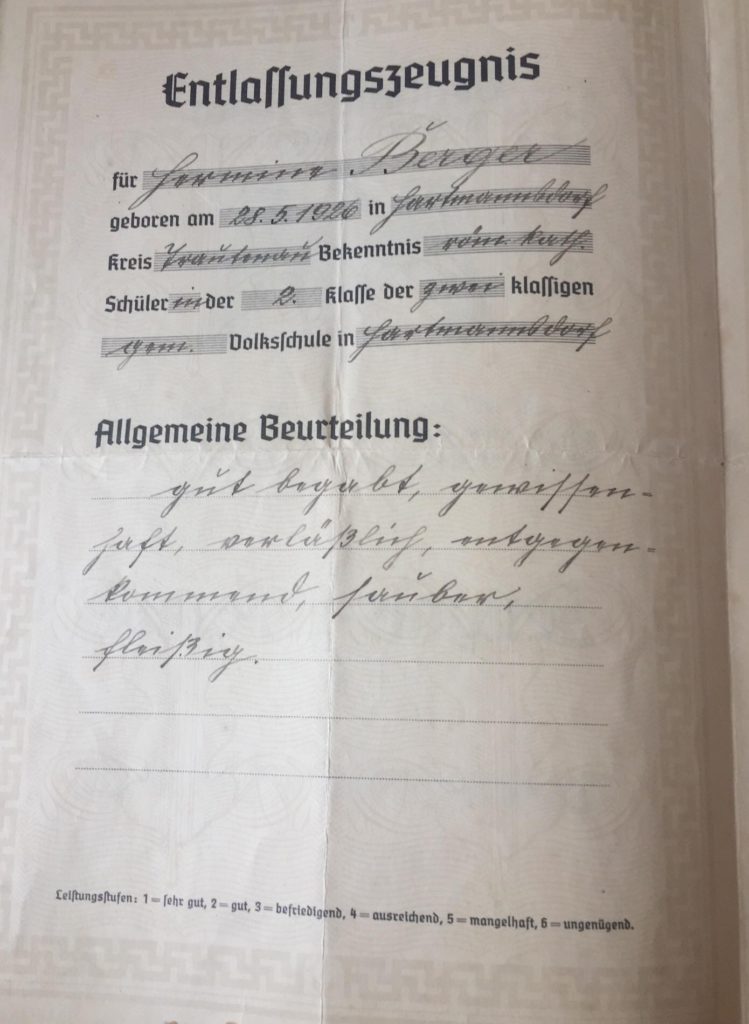 Entlassungszeugnis
für Hermine Berger
geboren am 28.5.1926 in Hartmannsdorf
Kreis Trautenau Bekenntnis röm. kath.
Schülerin der 2. Klasse der zwei klassigen
gem. Volksschule in Hartmannsdorf
Allgemeine Beurteilung:
gut begabt, gewissen-
haft, verläßlich, entgegen-
kommend, sauber,
fleißig.
Leistungsstufen: 1 = sehr gut, 2 = gut, 3 = befriedigend, 4 = ausreichend, 5 = mangelhaft, 6 = ungenügend.